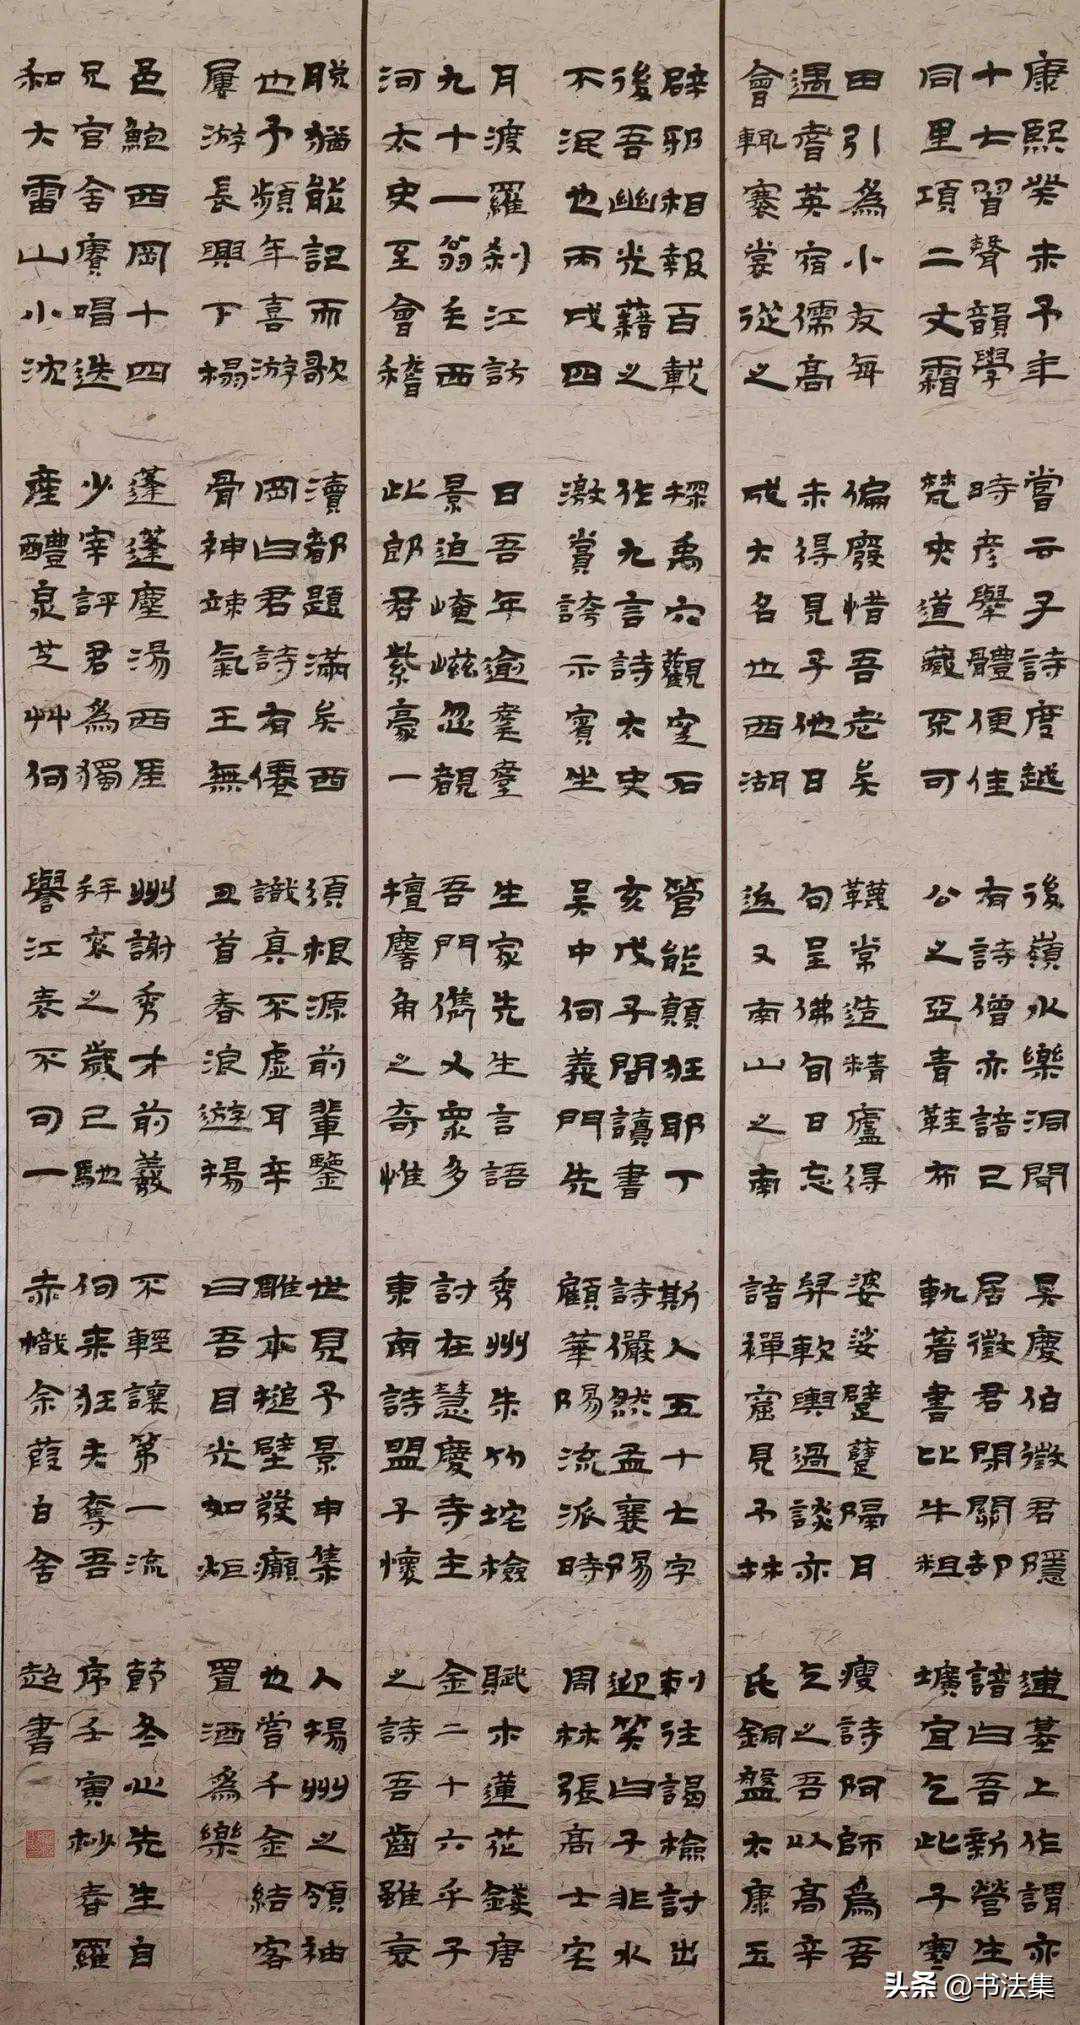 康熙癸未予年
十七習聲韻學
同里項二丈霜
田引為小友每
遇耆英宿儒高
會輒褰裳從之
嘗云子詩度越
時彥舉體便佳
梵夾道藏奈可
偏廢惜吾老矣
未得見子他日
成大名也西湖
後嶺水樂洞聞
有詩僧亦諳己
公之亞青鞋布
韈常造精廬得
句呈佛旬日忘
返又南山之南
吳慶伯徵君隱
居徵君閉關卻
軌著書比牛粗
婆娑躄躠隔月
舁軟輿過談亦
諳禪窟見予林
逋墓上作謂亦
諳曰吾新營生
壙宜乞此子寒
瘦詩阿師為吾
乞之吾以高辛
氏銅盤太康五
辟邪相報百載
後吾幽光藉之
不泯也丙戌四
月渡羅剎江訪
九十一翁毛西
河太史至會稽
探禹穴觀窆石
作九言詩太史
激賞誇示賓坐
曰吾年逾耄耋
景迫崦嵫忽覩
此郎君紫豪一
管能顛狂耶丁
亥戊子間讀書
吳中何義門先
生家先生言語
吾門儁乂眾多
擅麐角之奇惟
斯人五十七字
詩儼然孟襄陽
顧華陽流派時
秀州朱竹垞檢
討在慧慶寺主
東南詩盟予懷
刺往謁檢討出
迎笑曰子非水
周林張高士宅
賦木蓮花鏤唐
金二十六乎子
之詩吾齒雖衰
脫猶能記而歌
也予頻年喜游
屢游長興下榻
邑鮑西岡十四
兄官舍賡唱迭
和大雷山小沈
瀆都題滿矣西
岡曰君詩有僊
骨神竦氣王無
蓬蓬塵湯西厓
少宰評君為獨
產醴泉芝艸何
須根源前輩鑒
識真不虛耳辛
丑首春浪遊揚
州謝秀才前羲
拜袠之歲已馳
譽江表不可一
世見予景申集
雕本搥壁發癲
曰吾目光如炬
不輕讓第一流
何來狂夫奪吾
赤幟余葭白舍
人揚州之領袖
也嘗千金結客
置酒為樂
節冬心先生自
序壬寅杪春羅
超書
头条 @书法集